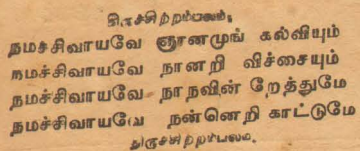 திருச்சிற்றம்பலம்.
நமச்சிவாயவே ஞானமுங் கல்வியும்
நமச்சிவாயவே நானறி விச்சையும்
நமச்சிவாயவே நாநவின் றேத்துமே
நமச்சிவாயவே நன்னெறி காட்டுமே
திருச்சிற்றம்பலம்.